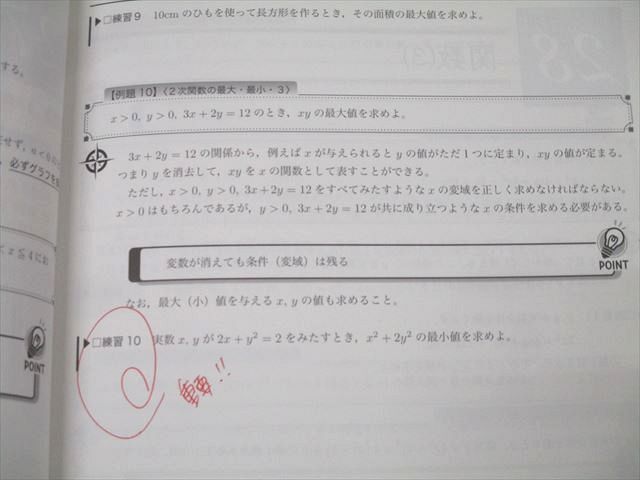 ▶□練習9 10cm のひもを使って長方形を作るとき,その面積の最大値を求めよ。
28
関数(2)
【例題 10】〈2次関数の最大・最小・3〉
x > 0, y > 0, 3x + 2y = 12 のとき, xy の最大値を求めよ。
3x + 2y = 12 の関係から,例えば x が与えられると y の値がただ1つに定まり, xy の値が定まる。
つまり y を消去して, xy を x の関数として表すことができる。
ただし, x > 0, y > 0, 3x + 2y = 12 をすべてみたすような x の変域を正しく求めなければならない。
x > 0 はもちろんであるが, y > 0, 3x + 2y = 12 が共に成り立つような x の条件を求める必要がある。
変数が消えても条件(変域)は残る
POINT
なお,最大(小)値を与える x, y の値も求めること。
▶□練習10 実数 x, y が 2x + y² = 2 をみたすとき, x² + 2y² の最小値を求めよ。
重要!!
する。
必ずグラフを
x ≦ 4 にお
POINT